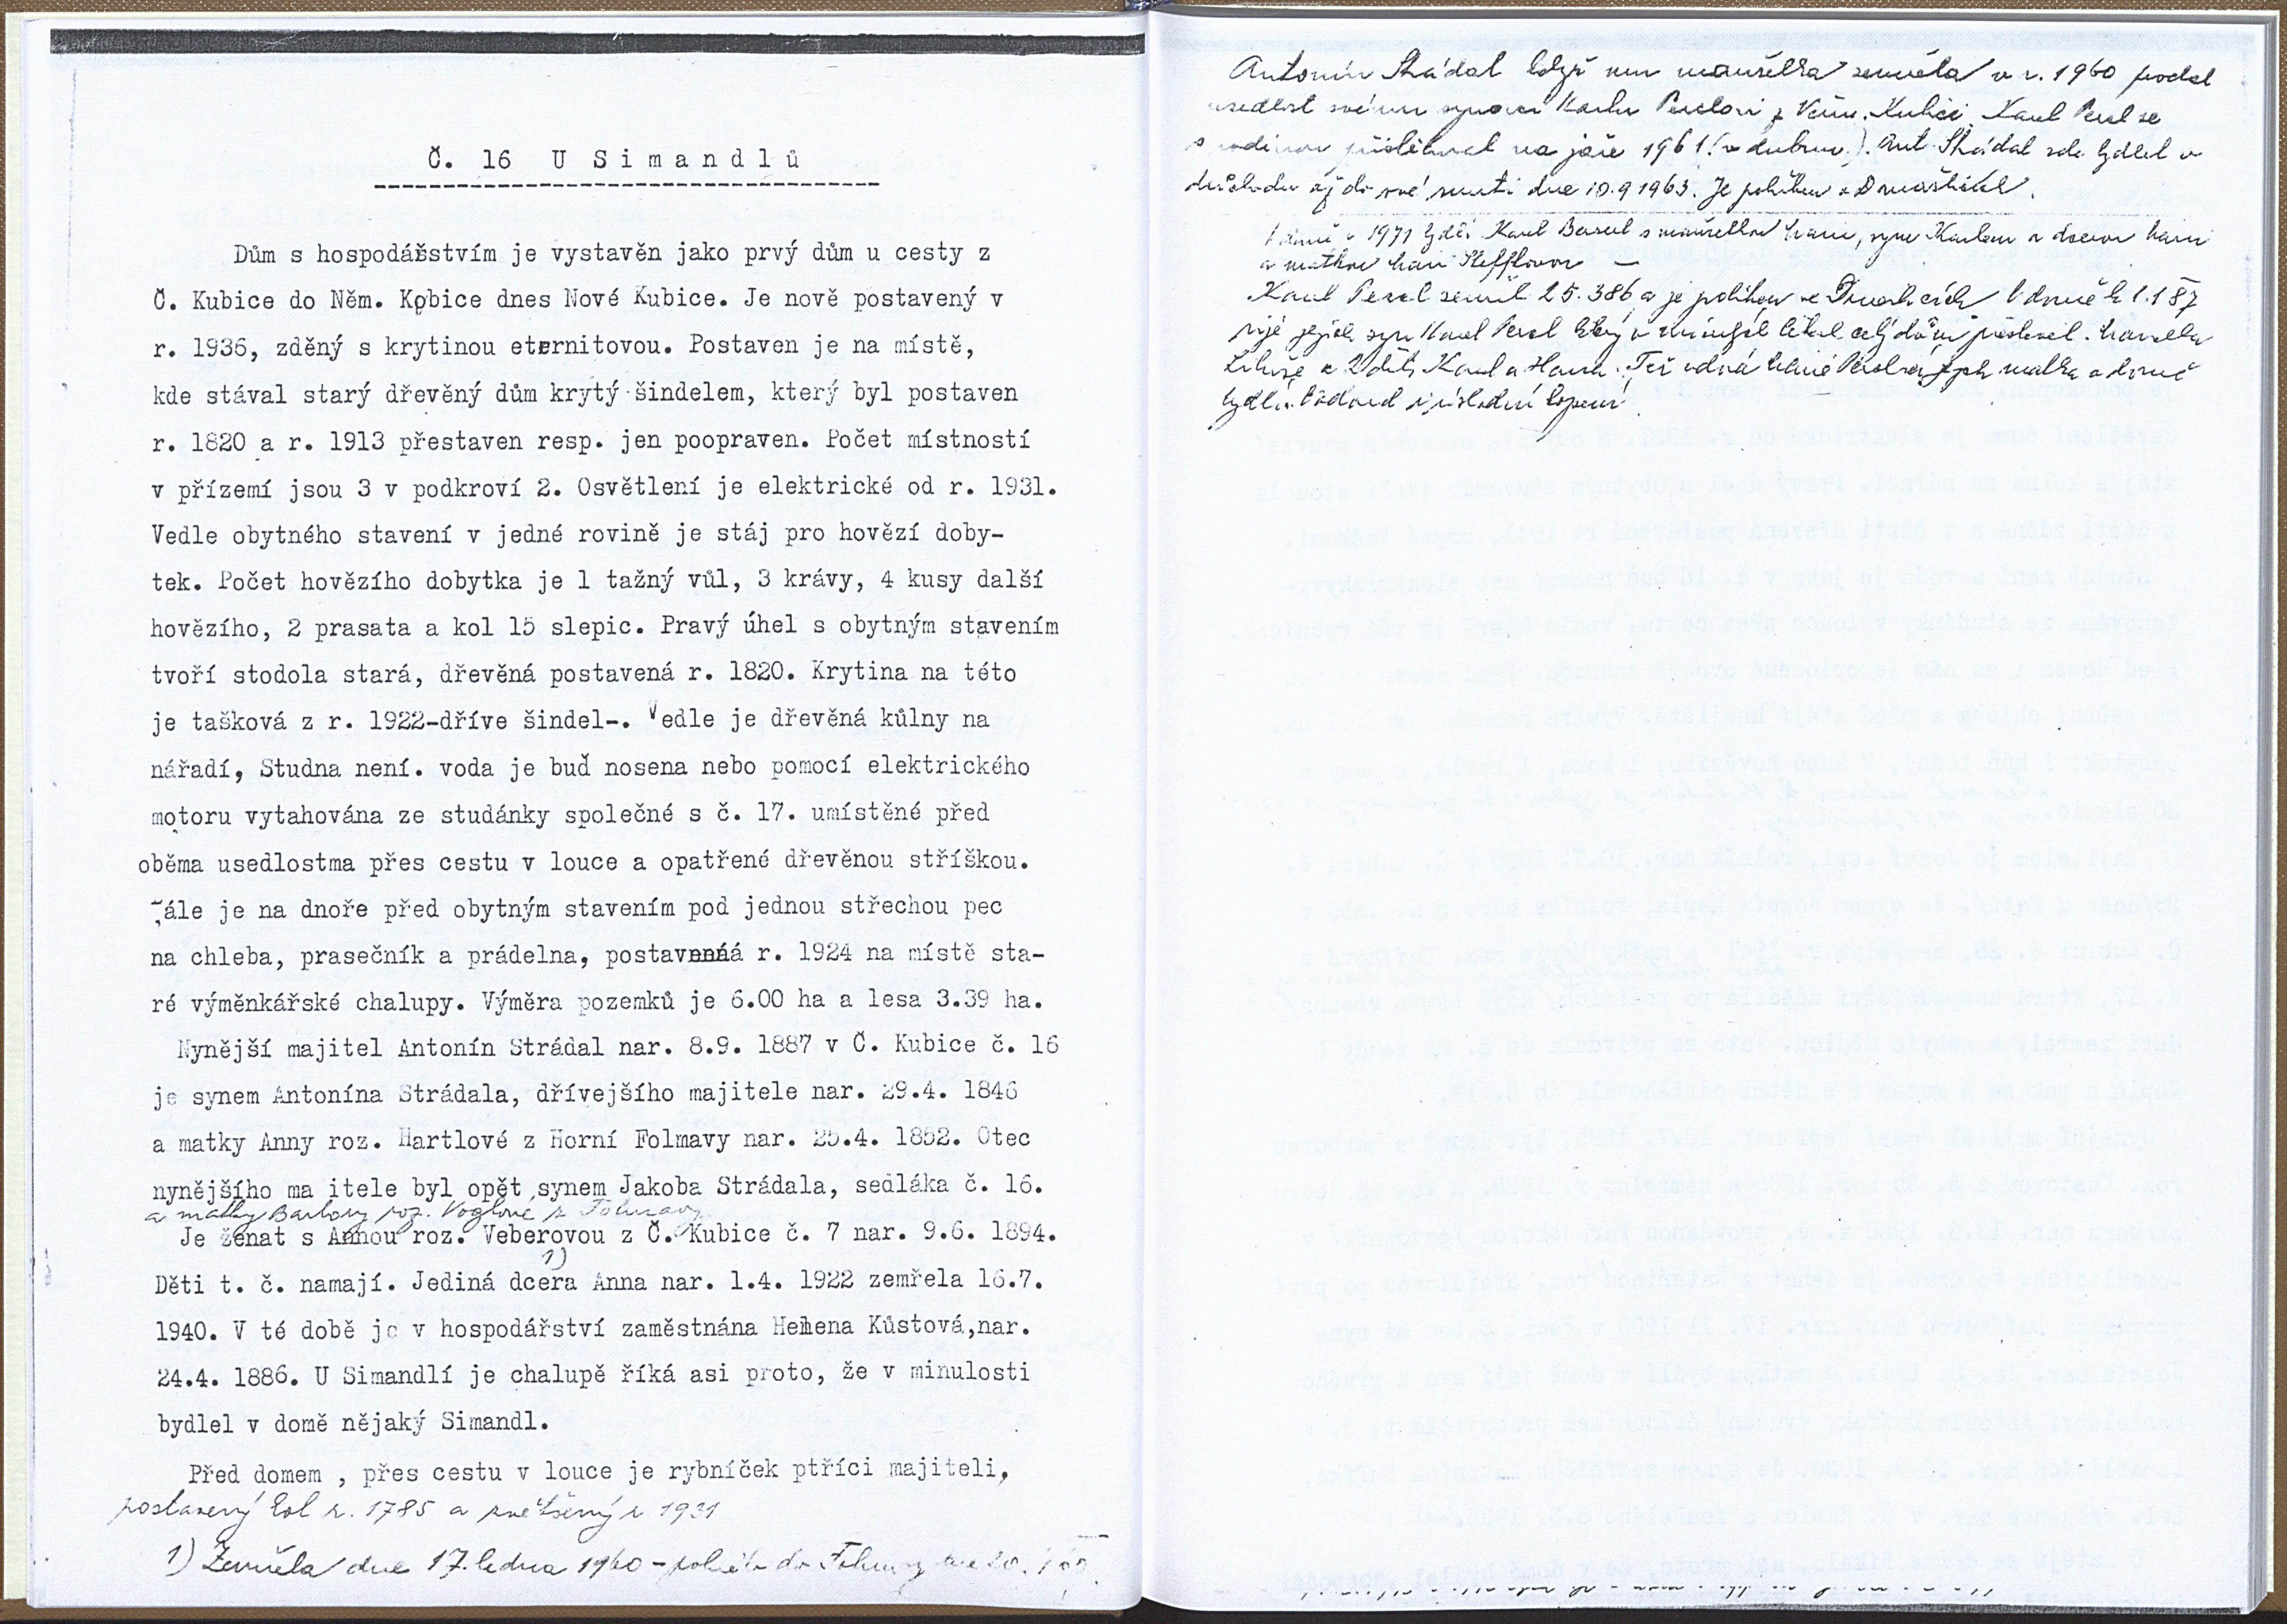 Č. 16 U Simandlů
Dům s hospodářstvím je vystavěn jako prvý dům u cesty z
Č. Kubice do Něm. Kobice dnes Nové Kubice. Je nově postavený v
r. 1936, zděný s krytinou eternitovou. Postaven je na místě,
kde stával starý dřevěný dům krytý šindelem, který byl postaven
r. 1820 a r. 1913 přestaven resp. jen poopraven. Počet místností
v přízemí jsou 3 v podkroví 2. Osvětlení je elektrické od r. 1931.
Vedle obytného stavení v jedné rovině je stáj pro hovězí doby-
tek. Počet hovězího dobytka je 1 tažný vůl, 3 krávy, 4 kusy další
hovězího, 2 prasata a kol 15 slepic. Pravý úhel s obytným stavením
tvoří stodola stará, dřevěná postavená r. 1820. Krytina na této
je tašková z r. 1922-dříve šindel-. Vedle je dřevěná kůlny na
nářadí, Studna není. voda je buď nosena nebo pomocí elektrického
motoru vytahována ze studánky společné s č. 17. umístěné před
oběma usedlostma přes cestu v louce a opatřené dřevěnou stříškou.
ále je na dnoře před obytným stavením pod jednou střechou pec
na chleba, prasečník a prádelna, postavenáá r. 1924 na místě sta-
ré výměnkářské chalupy. Výměra pozemků je 6.00 ha a lesa 3.39 ha.
Nynější majitel Antonín Strádal nar. 8.9. 1887 v Č. Kubice č. 16
je synem Antonína Strádala, dřívejšího majitele nar. 29.4. 1846
a matky Anny roz. Hartlové z Horní Folmavy nar. 25.4. 1852. Otec
nynějšího ma itele byl opět synem Jakoba Strádala, sedláka č. 16.
a matky Barbory roz. Voglové z Folmavy
Je ženat s Annou roz. Veberovou z Č. Kubice č. 7 nar. 9.6. 1894.
1)
Děti t. č. namají. Jediná dcera Anna nar. 1.4. 1922 zemřela 16.7.
1940. V té době je v hospodářství zaměstnána Helena Kůstová,nar.
24.4. 1886. U Simandlí je chalupě říká asi proto, že v minulosti
bydlel v domě nějaký Simandl.
Před domem , přes cestu v louce je rybníček ptříci majiteli,
postavený kol r. 1785 a zvětšený r 1931
1) Zemřela dne 17. ledna 1960 - do Folmavy dne 20.
Antonín Strádal když mu manželka zemřela v r. 1960 prodal
usedlost svému synovci Karlu Perslovi z Kubici Karel Persl se
s rodinou přistěhoval na jaře 1961 (v dubnu). Ant. Strádal zde bydlel v
důchodu až do své smrti dne 10.9 1963. Je pohřben v Domažlicích.
V domě v 1971 bydlí Karel s manželkou synem Karlem a dcerou
a matkou
Karel Persl zemřel 25.386 a je pohřben v Domažlicích V domě k 1.1 87
žije jejich syn Karel Persl který v minulých létech celý dům přestavěl. Manželka
Libuše a 2 děti Karel a Hana. Též vdova Perslová jeho matka v domě
bydlí.